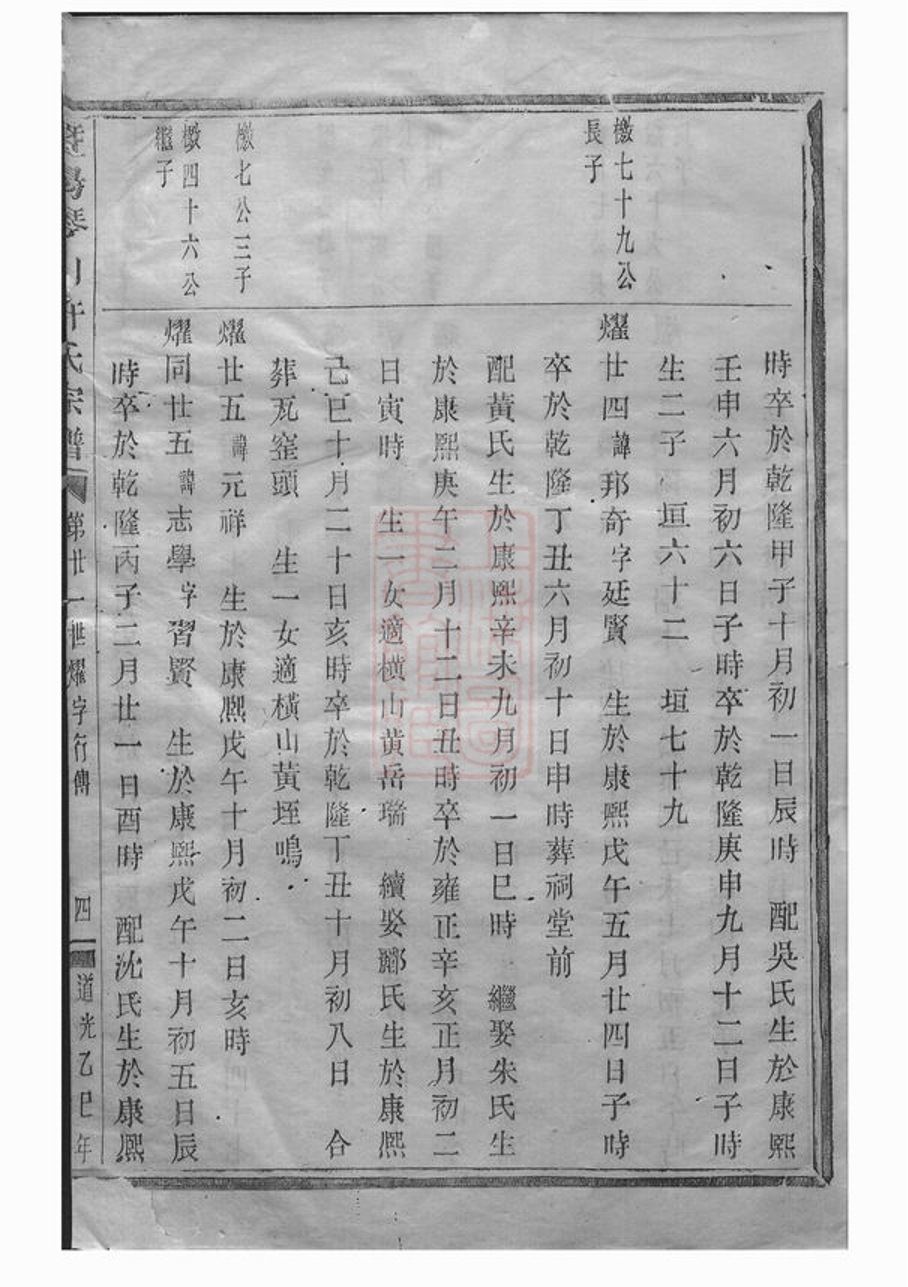 時卒於乾隆甲子十月初一日辰時 配吳氏生於康熙
壬申六月初六日子時卒於乾隆庚申九月十二日子時
生二子 垣六十二 垣七十九
檄七十九公
長子
燿廿四諱邦奇字廷賢 生於康熙戊午五月廿四日子時
卒於乾隆丁丑六月初十日申時葬祠堂前
配黃氏生於康熙辛未九月初一日巳時 繼娶朱氏生
於康熙庚午二月十二日丑時卒於雍正辛亥正月初二
日寅時 生一女適橫山黄岳瑞 續娶酈氏生於康熙
己巳十月二十日亥時卒於乾隆丁丑十月初八日 合
葬瓦窑頭 生一女適橫山黃垤鳴
檄七公三子
燿廿五諱元祥 生於康熙戊午十月初二日亥時
檄四十六公
繼子
燿同廿五諱志學字習賢 生於康熙戊午十月初五日辰
時卒於乾隆丙子二月廿一日酉時 配沈氏生於康熙
暨陽琴川許氏宗譜 第廿一世燿字行傳 四 道光乙巳年